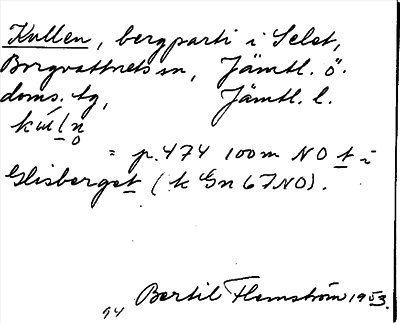 Kullen, bergparti i Selet,
Borgvattnets sn, Jämtl. ö.
doms. tg, Jämtl. l.
= p. 474 100 m NO t i
Glisberget (k Gn 67 NO).
Bertil Flemström 1953.
94